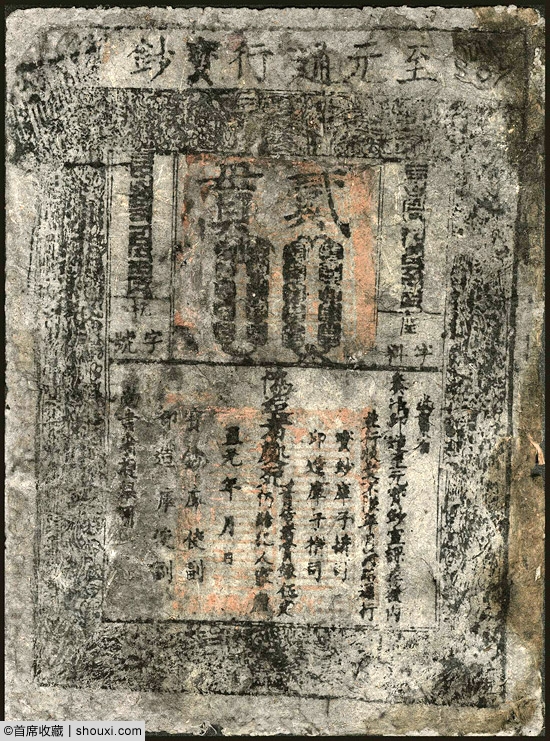 至元通行寶鈔
貳貫
字料
字號
尚書省
奏准印造至元寶鈔宣課差役內
並行收受不限年月諸路通行
寶鈔庫子攢司
印造庫子攢司
偽造者處死
首告者賞銀伍定
仍給犯人家產
至元 年 月 日
寶鈔庫使副
印造庫使副
尚書省提舉司
©首席收藏 | shouxi.com